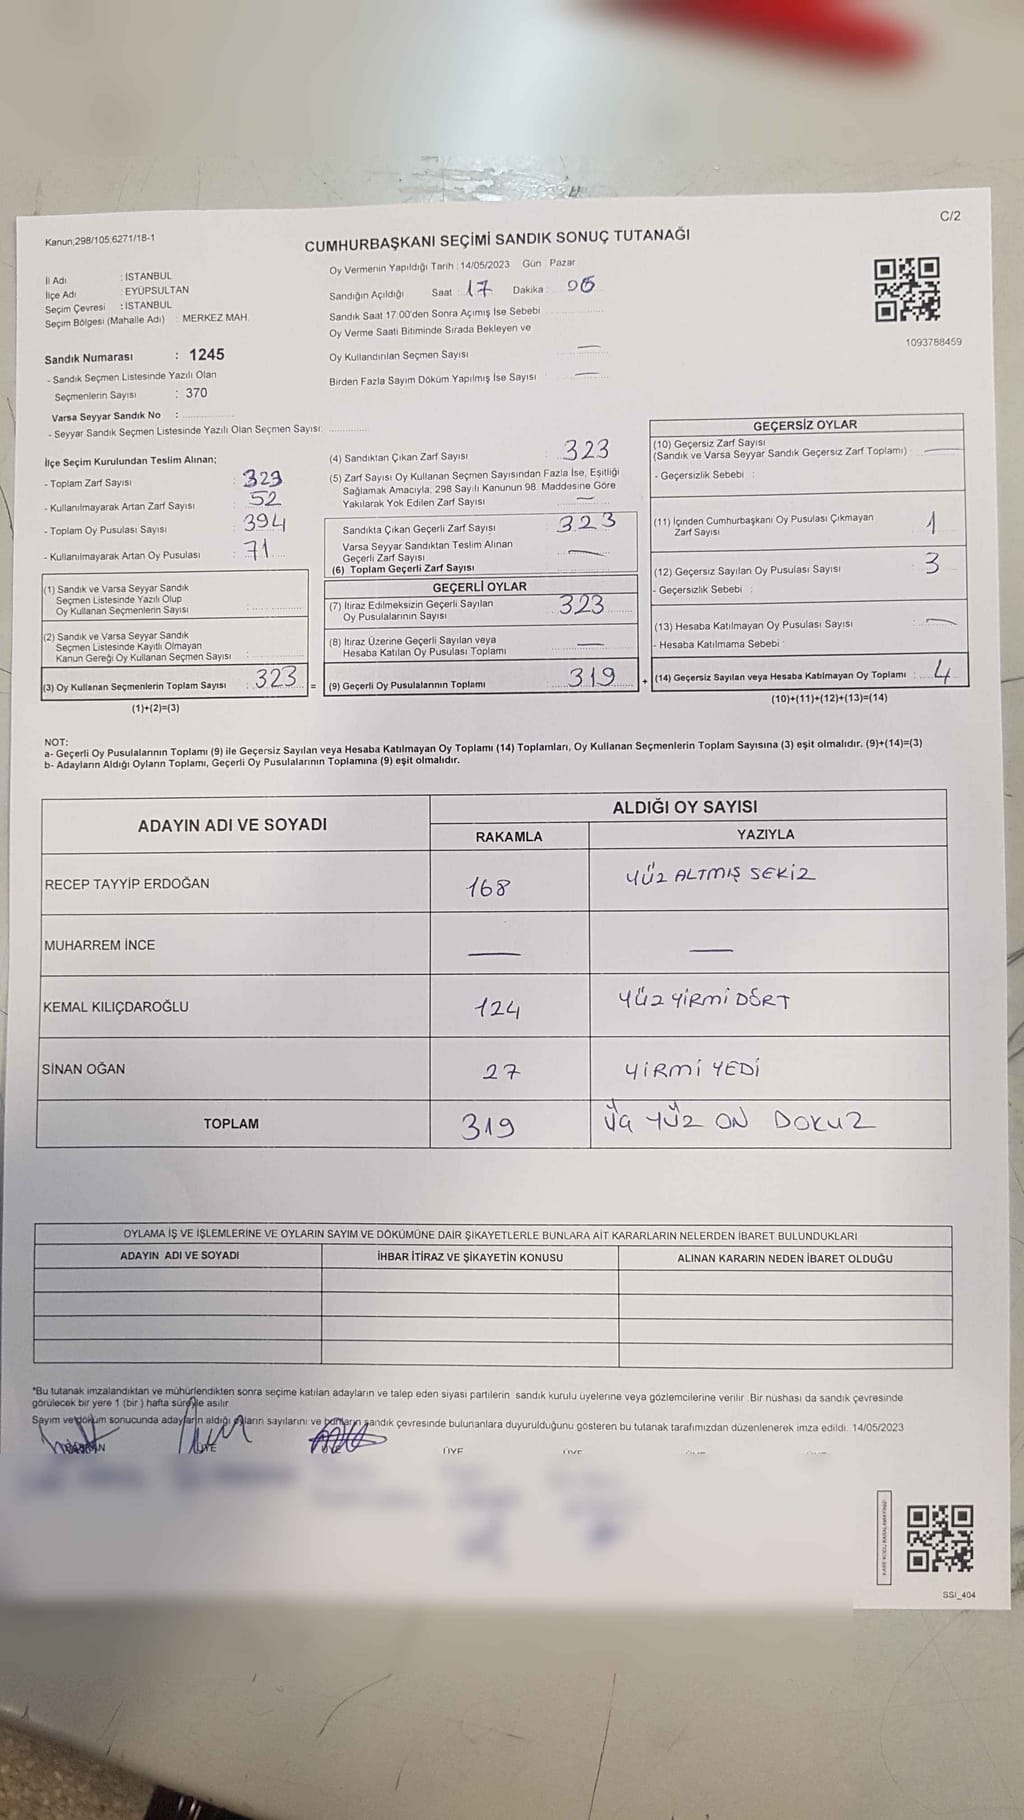 C/2
Kanun;298/105;6271/18-1
CUMHURBAŞKANI SEÇİMİ SANDIK SONUÇ TUTANAĞI
İl Adı : İSTANBUL
İlçe Adı : EYÜPSULTAN
Seçim Çevresi : İSTANBUL
Seçim Bölgesi (Mahalle Adı) : MERKEZ MAH.
Oy Vermenin Yapıldığı Tarih : 14/05/2023 Gün : Pazar
Sandığın Açıldığı Saat : 17 Dakika : 06
Sandık Saat 17:00'den Sonra Açımış İse Sebebi
Oy Verme Saati Bitiminde Sırada Bekleyen ve
Oy Kullandırılan Seçmen Sayısı —
Birden Fazla Sayım Döküm Yapılmış İse Sayısı —
1093788459
Sandık Numarası : 1245
- Sandık Seçmen Listesinde Yazılı Olan
Seçmenlerin Sayısı : 370
Varsa Seyyar Sandık No :
- Seyyar Sandık Seçmen Listesinde Yazılı Olan Seçmen Sayısı:
İlçe Seçim Kurulundan Teslim Alınan;
- Toplam Zarf Sayısı : 323
- Kullanılmayarak Artan Zarf Sayısı : 52
- Toplam Oy Pusulası Sayısı : 394
- Kullanılmayarak Artan Oy Pusulası : 71
(1) Sandık ve Varsa Seyyar Sandık
Seçmen Listesinde Yazılı Olup
Oy Kullanan Seçmenlerin Sayısı :
(2) Sandık ve Varsa Seyyar Sandık
Seçmen Listesinde Kayıtlı Olmayan
Kanun Gereği Oy Kullanan Seçmen Sayısı :
(3) Oy Kullanan Seçmenlerin Toplam Sayısı : 323 =
(1)+(2)=(3)
(4) Sandıktan Çıkan Zarf Sayısı : 323
(5) Zarf Sayısı Oy Kullanan Seçmen Sayısından Fazla İse, Eşitliği
Sağlamak Amacıyla; 298 Sayılı Kanunun 98. Maddesine Göre
Yakılarak Yok Edilen Zarf Sayısı —
Sandıkta Çıkan Geçerli Zarf Sayısı : 323
Varsa Seyyar Sandıktan Teslim Alınan
Geçerli Zarf Sayısı —
(6) Toplam Geçerli Zarf Sayısı
GEÇERLİ OYLAR
(7) İtiraz Edilmeksizin Geçerli Sayılan
Oy Pusulalarının Sayısı : 323
(8) İtiraz Üzerine Geçerli Sayılan veya
Hesaba Katılan Oy Pusulası Toplamı : —
(9) Geçerli Oy Pusulalarının Toplamı : 319 +
GEÇERSİZ OYLAR
(10) Geçersiz Zarf Sayısı
(Sandık ve Varsa Seyyar Sandık Geçersiz Zarf Toplamı) : —
- Geçersizlik Sebebi :
(11) İçinden Cumhurbaşkanı Oy Pusulası Çıkmayan
Zarf Sayısı 1
(12) Geçersiz Sayılan Oy Pusulası Sayısı 3
- Geçersizlik Sebebi :
(13) Hesaba Katılmayan Oy Pusulası Sayısı : —
- Hesaba Katılmama Sebebi :
(14) Geçersiz Sayılan veya Hesaba Katılmayan Oy Toplamı : 4
(10)+(11)+(12)+(13)=(14)
NOT:
a- Geçerli Oy Pusulalarının Toplamı (9) ile Geçersiz Sayılan veya Hesaba Katılmayan Oy Toplamı (14) Toplamları, Oy Kullanan Seçmenlerin Toplam Sayısına (3) eşit olmalıdır. (9)+(14)=(3)
b- Adayların Aldığı Oyların Toplamı, Geçerli Oy Pusulalarının Toplamına (9) eşit olmalıdır.
ADAYIN ADI VE SOYADI ALDIĞI OY SAYISI
RAKAMLA YAZIYLA
RECEP TAYYİP ERDOĞAN 168 YÜZ ALTMIŞ SEKİZ
MUHARREM İNCE — —
KEMAL KILIÇDAROĞLU 124 YÜZ YİRMİ DÖRT
SİNAN OĞAN 27 YİRMİ YEDİ
TOPLAM 319 ÜÇ YÜZ ON DOKUZ
OYLAMA İŞ VE İŞLEMLERİNE VE OYLARIN SAYIM VE DÖKÜMÜNE DAİR ŞİKAYETLERLE BUNLARA AİT KARARLARIN NELERDEN İBARET BULUNDUKLARI
ADAYIN ADI VE SOYADI İHBAR İTİRAZ VE ŞİKAYETİN KONUSU ALINAN KARARIN NEDEN İBARET OLDUĞU
*Bu tutanak imzalandıktan ve mühürlendikten sonra seçime katılan adayların ve talep eden siyasi partilerin sandık kurulu üyelerine veya gözlemcilerine verilir. Bir nüshası da sandık çevresinde
görülecek bir yere 1 (bir ) hafta süreyle asılır
Sayım ve döküm sonucunda adayların aldığı oyların sayılarını ve bunların sandık çevresinde bulunanlara duyurulduğunu gösteren bu tutanak tarafımızdan düzenlenerek imza edildi. 14/05/2023
BAŞKAN ÜYE ÜYE ÜYE ÜYE
SSI_404